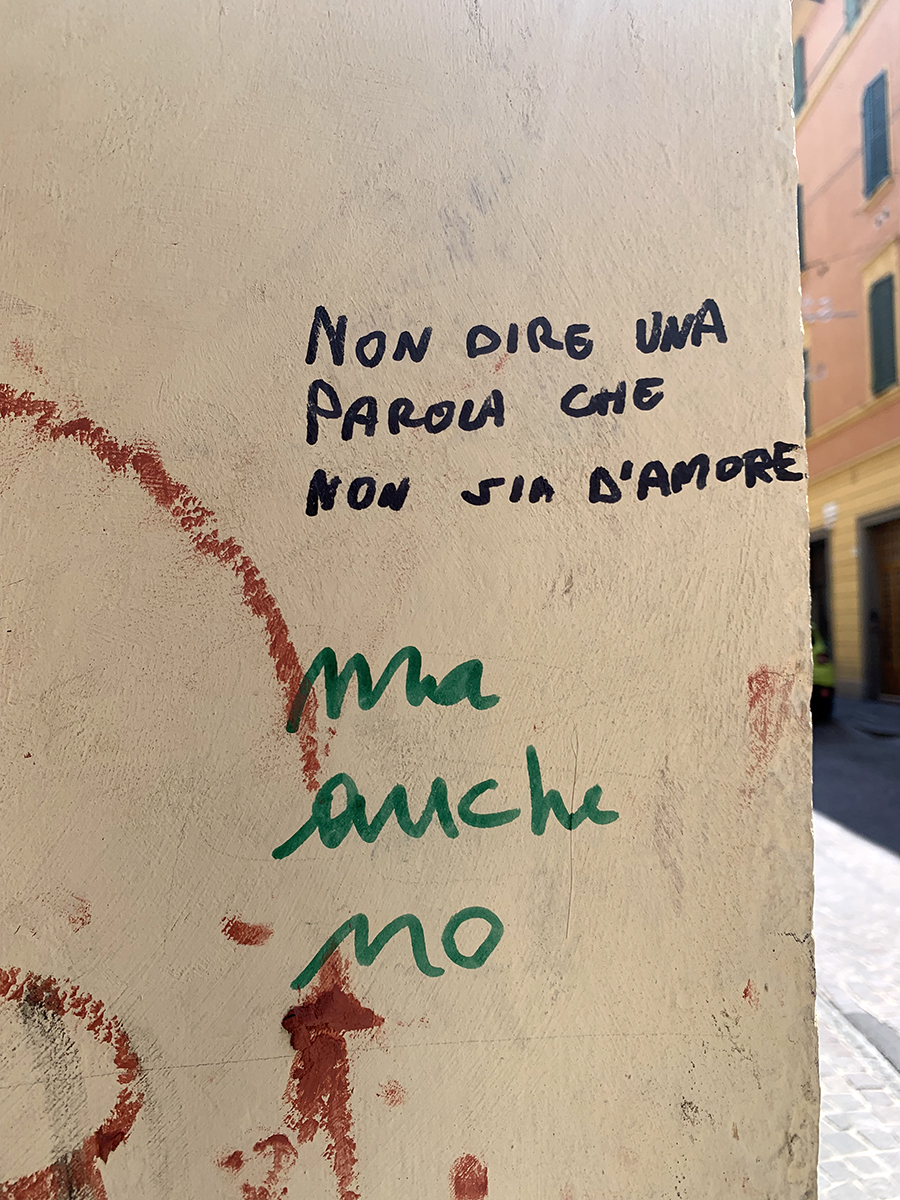 NON DIRE UNA
PAROLA CHE
NON SIA D'AMORE
ma
anche
no